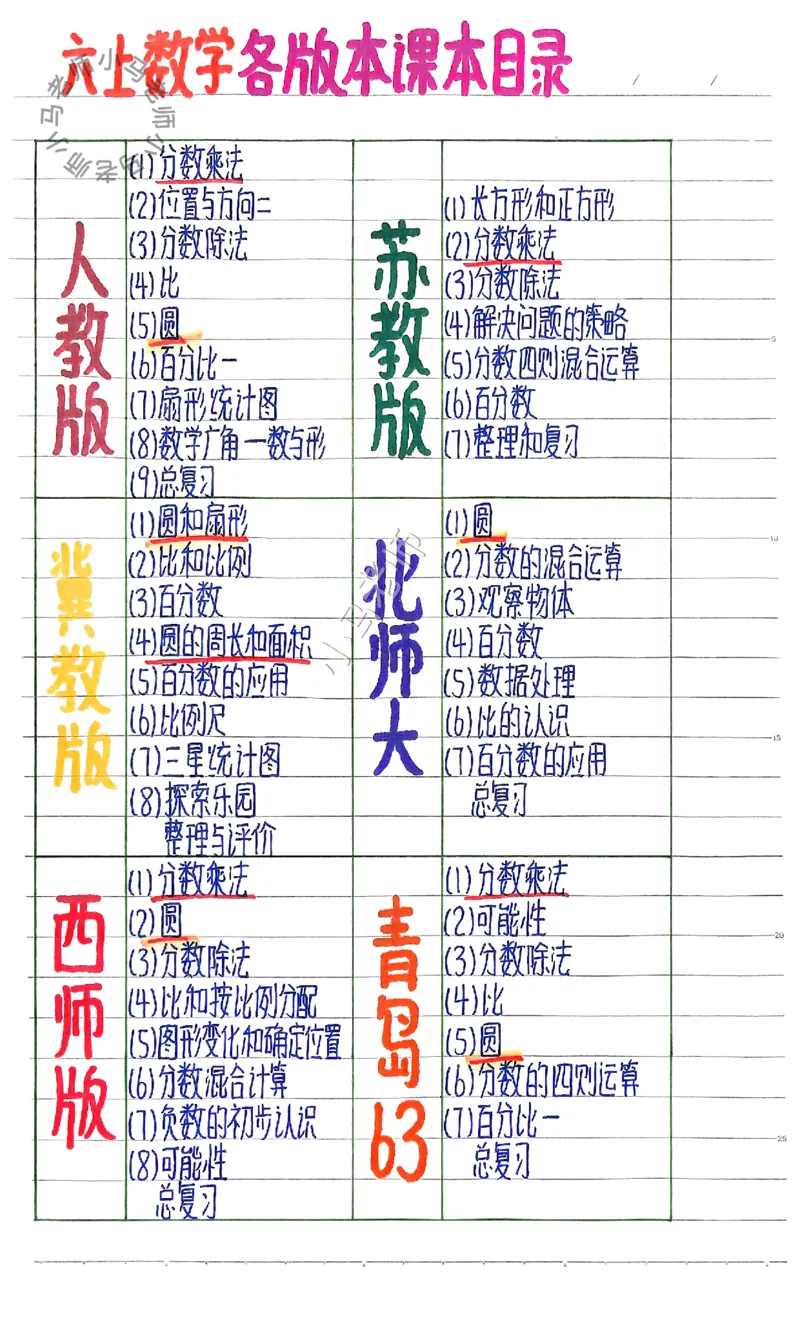 六上数学各版本课本目录
人教版
(1)分数乘法
(2)位置与方向二
(3)分数除法
(4)比
(5)圆
(6)百分比一
(7)扇形统计图
(8)数学广角一数与形
(9)总复习
苏教版
(1)长方形和正方形
(2)分数乘法
(3)分数除法
(4)解决问题的策略
(5)分数四则混合运算
(6)百分数
(7)整理和复习
冀教版
(1)圆和扇形
(2)比和比例
(3)百分数
(4)圆的周长和面积
(5)百分数的应用
(6)比例尺
(7)三星统计图
(8)探索乐园
整理与评价
北师大
(1)圆
(2)分数的混合运算
(3)观察物体
(4)百分数
(5)数据处理
(6)比的认识
(7)百分数的应用
总复习
西师版
(1)分数乘法
(2)圆
(3)分数除法
(4)比和按比例分配
(5)图形变化和确定位置
(6)分数混合计算
(7)负数的初步认识
(8)可能性
总复习
青岛63
(1)分数乘法
(2)可能性
(3)分数除法
(4)比
(5)圆
(6)分数的四则运算
(7)百分比一
总复习
5
10
15
20
25
小马老师小马老师小马老师
小马老师